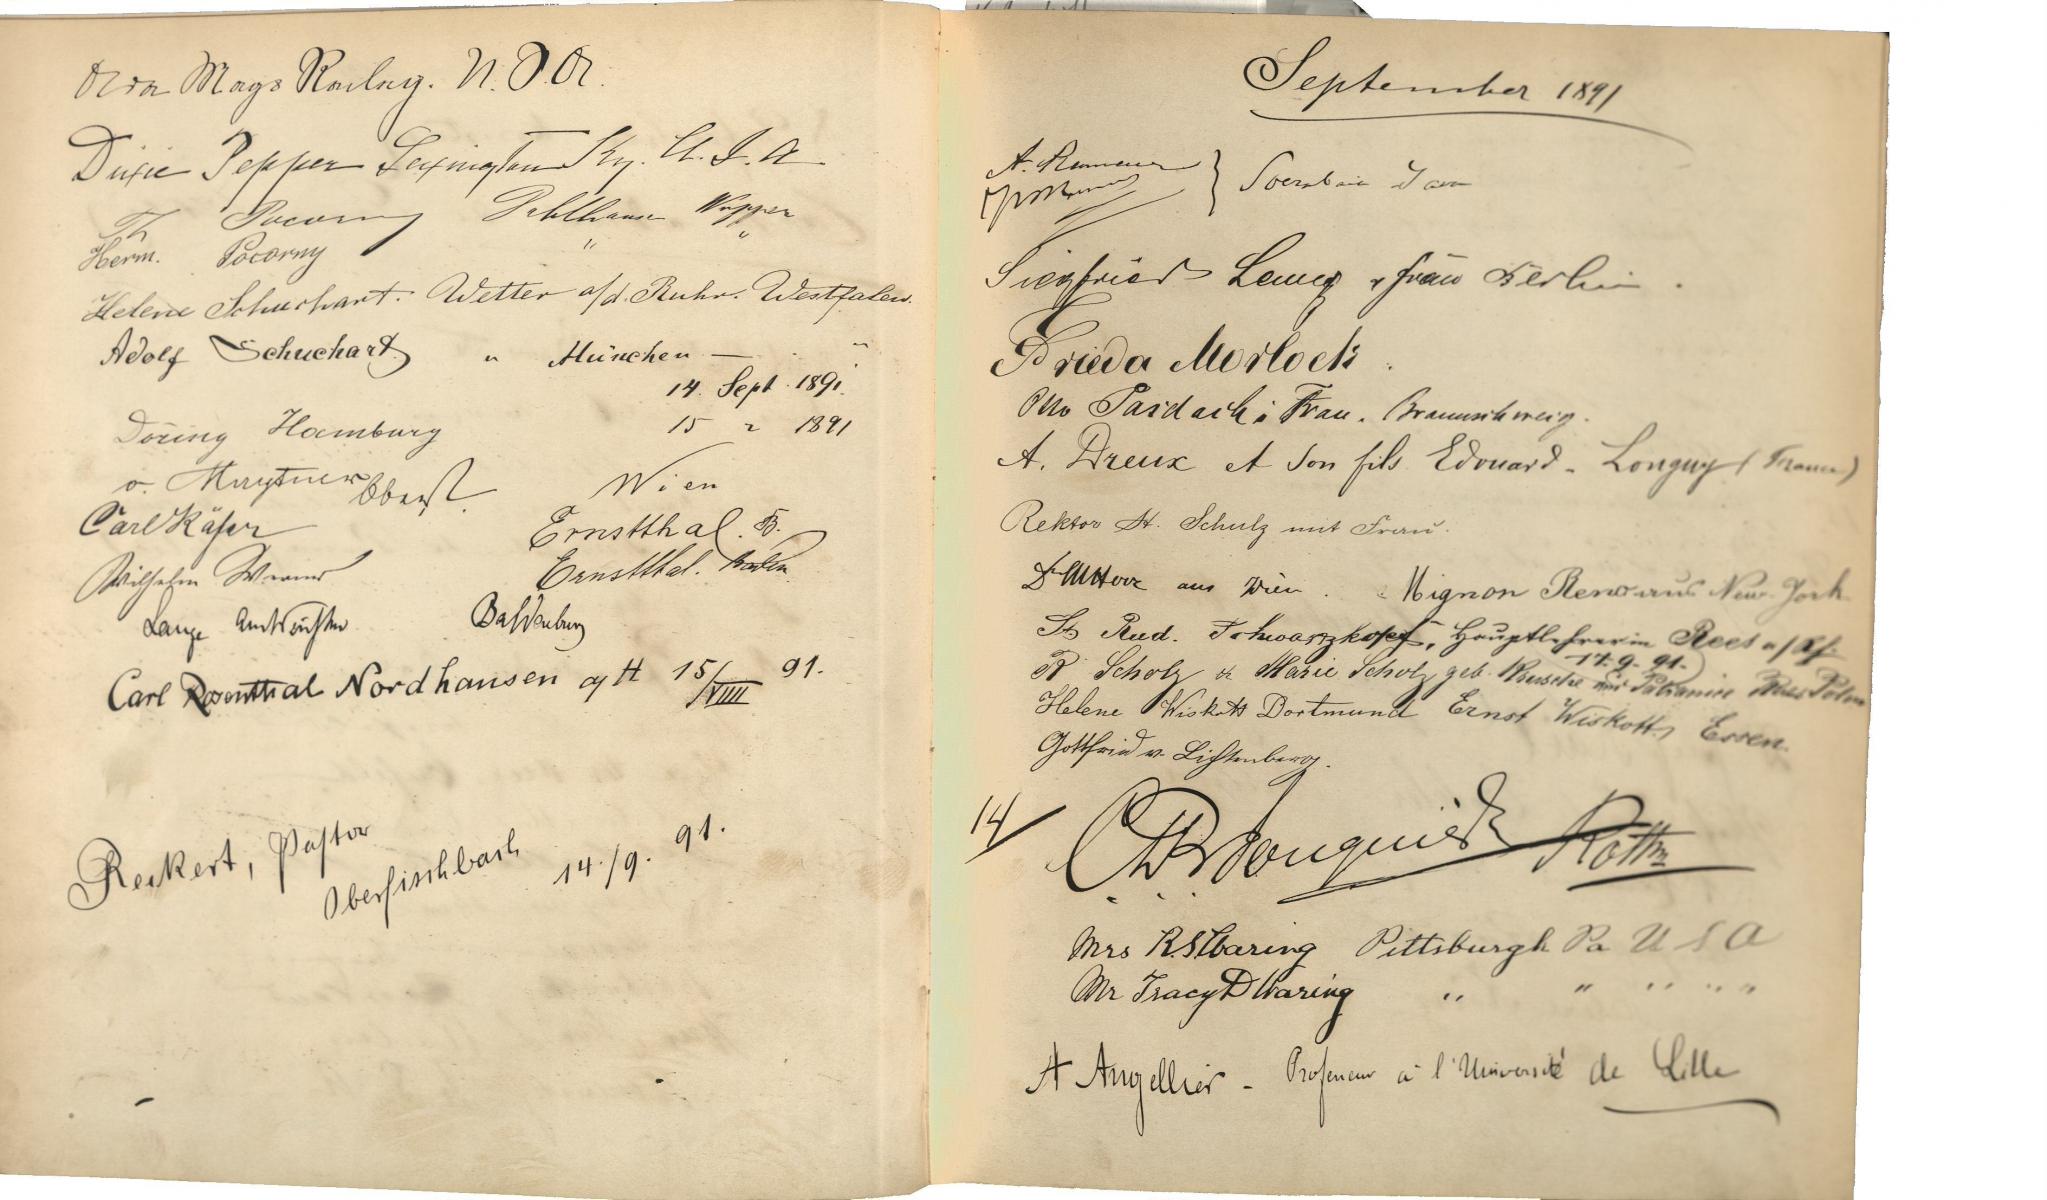 Mays U.S.A.
Dixie Pepper Lexington Ky. U.S.A
Th Pocorny Wupper
Herm. Pocorny " "
Helene Schuchart. Wetter a/d. Ruhr. Westfalen.
Adolf Schuchart " München — "
14. Sept. 1891.
Döring Hamburg 15 " 1891
v. Oberst Wien
Carl Käfer Ernstthal. B.
Wilhelm Werner Ernstthal. Baden
Lange Amtsrichter Baldenburg
Carl Rosenthal Nordhausen a/H 15/VIIII 91.
Reikert, Pastor
Oberfischbach 14./9. 91.
September 1891
A.
Soerabaia Java
Siegfried u. Frau Berlin.
Frieda Morlock.
Otto Frau. Braunschweig.
A. Dreux et son fils Edouard - Longwy (France)
Rektor H. Schulz mit Frau.
Dr aus Wien. Mignon New-York
Rud. Schwarzkopf, Hauptlehrer in Rees a/Rh.
17.9.91.
R Scholz & Marie Scholz geb. Russ Polen
Helene Wiskott Dortmund Ernst Wiskott, Essen.
Gottfried v. Lichtenberg.
14/
Mrs R.S. Waring Pittsburgh Pa U S A
Mr Tracy D Waring " " " " "
A Angellier - Professeur à l'Université de Lille